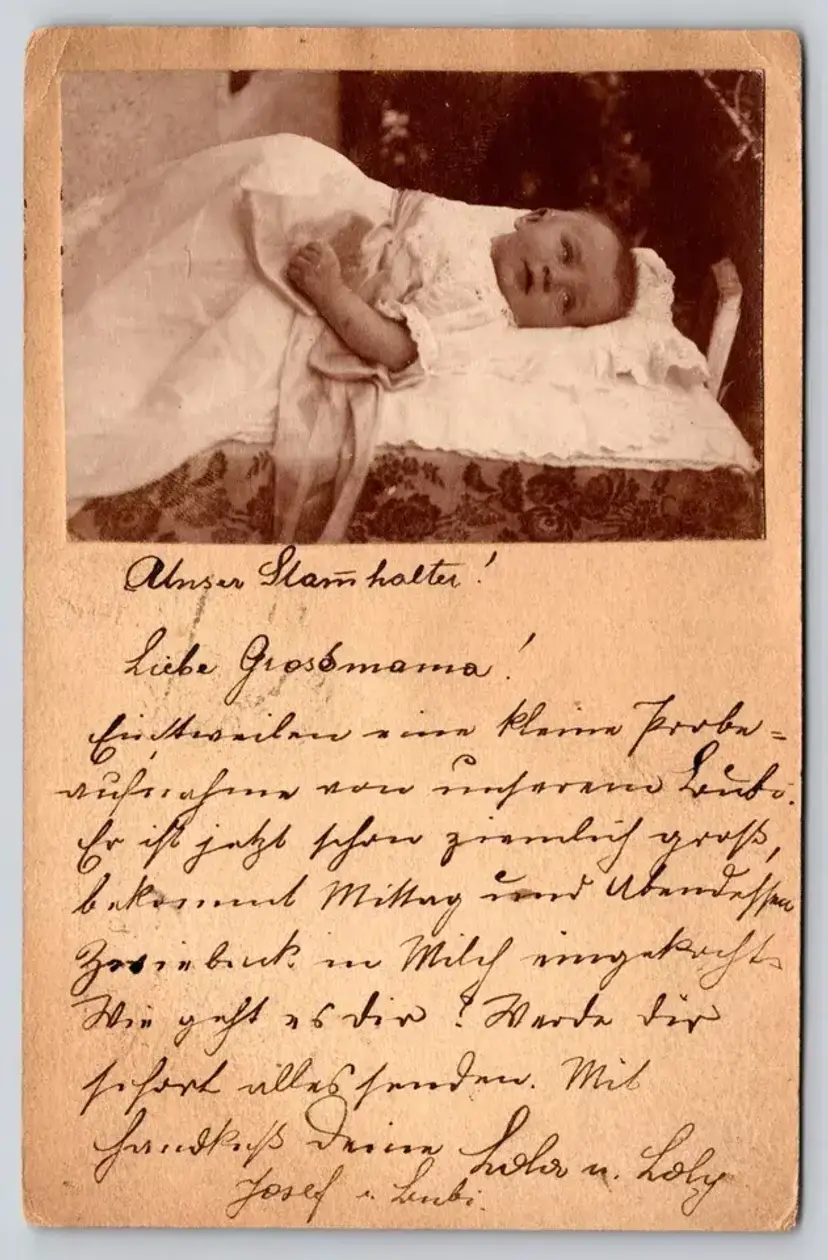 Unser Stam̅halter!
Liebe Grossmama!
Einstweilen eine kleine Probe=
aufnahme von unserem Bubi.
Er ist jetzt schon ziemlich groß,
bekommt Mittag und Abendessen
Zwieback in Milch eingekocht.
Wie geht es dir? Werde dir
sofort alles senden. Mit
Handkuß Deine u.
Josef u. Bubi.